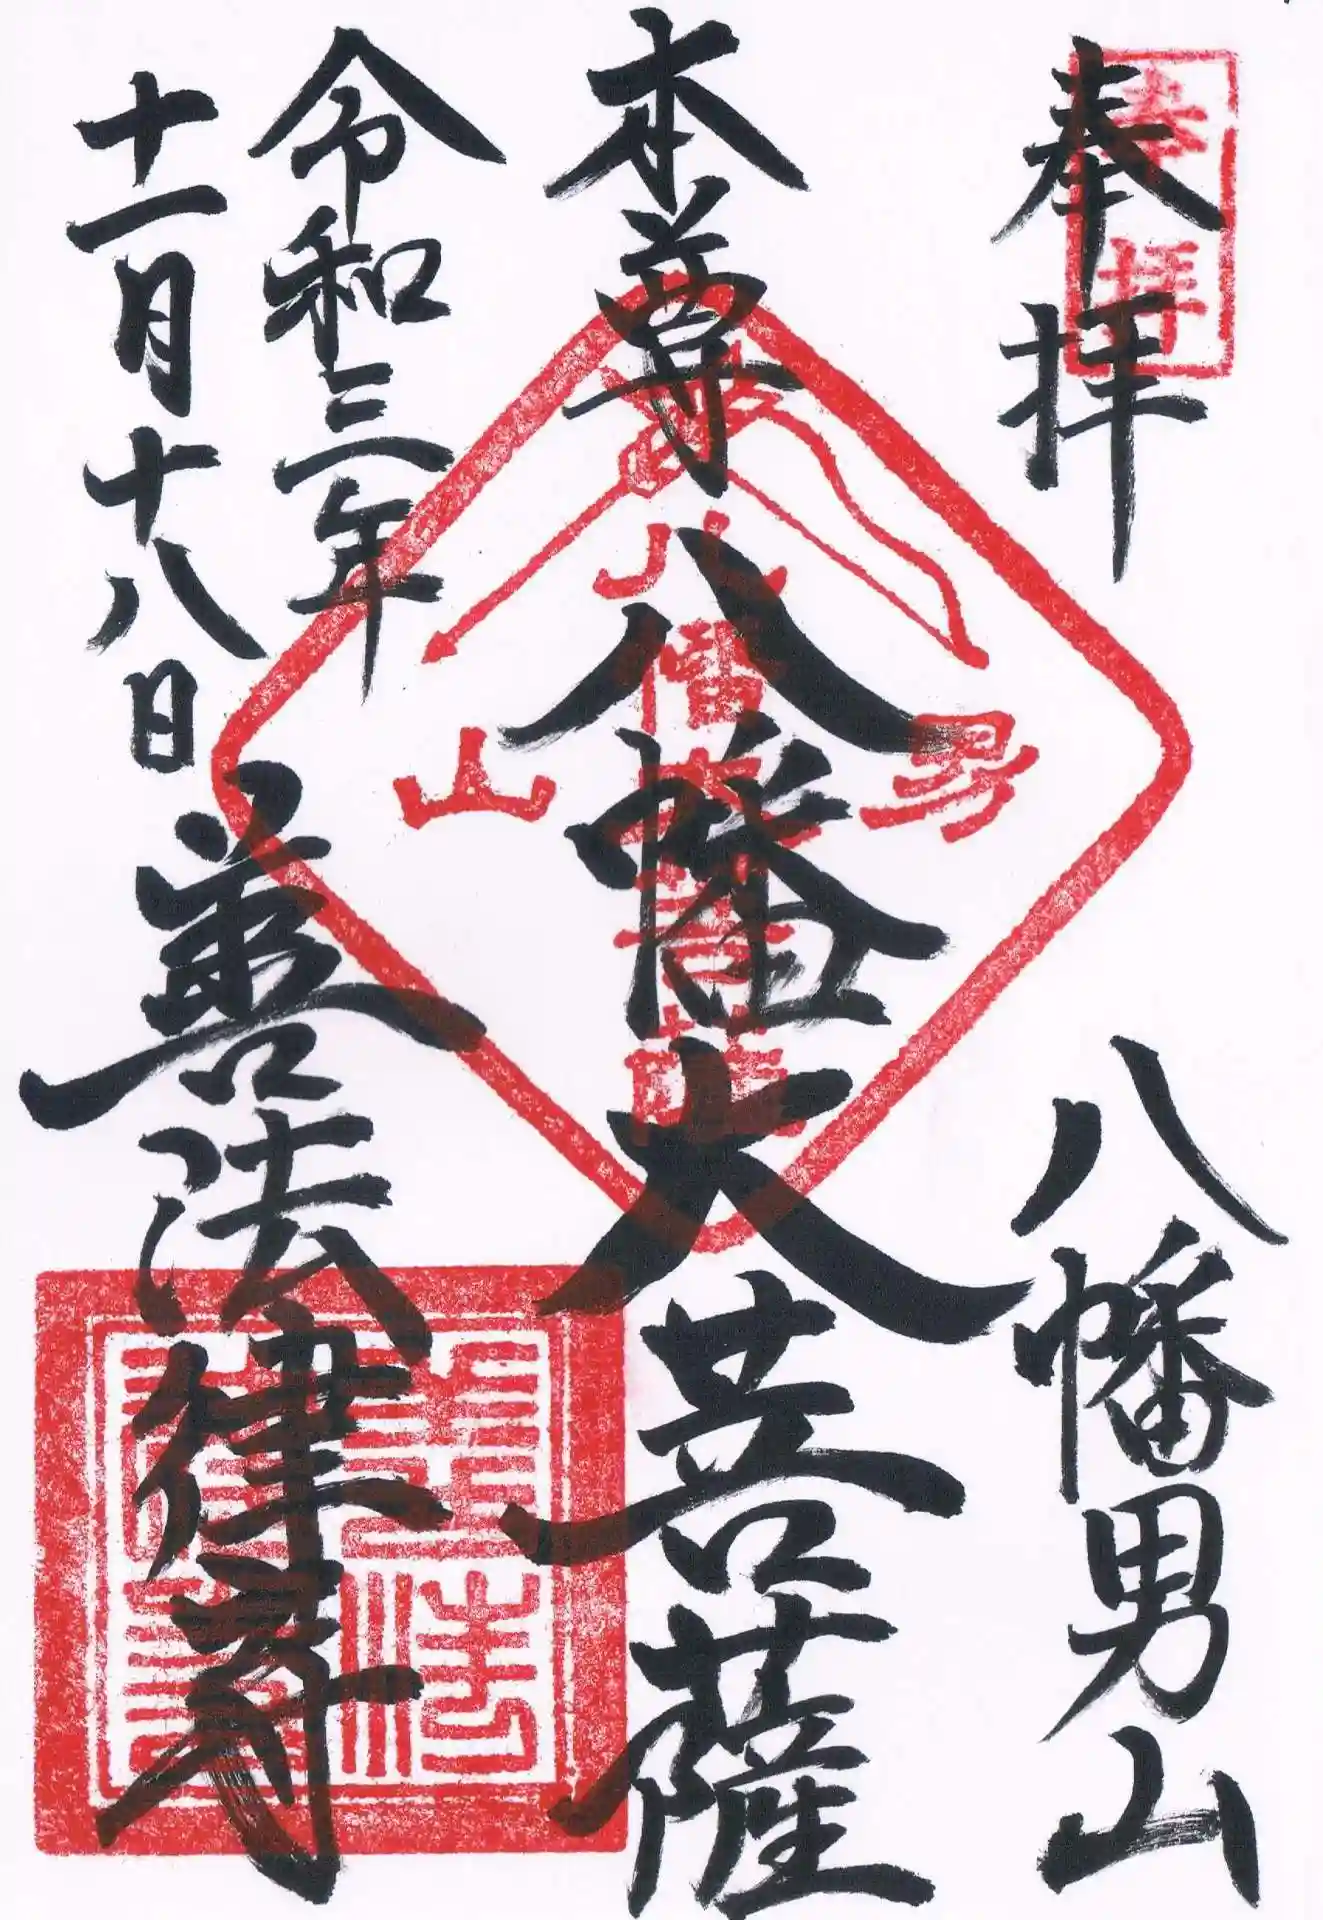 奉拝
八幡男山
本尊
八幡大菩薩
令和三年
十一月十八日
善法律寺
奉拝
八幡大菩薩
男山
善法律寺